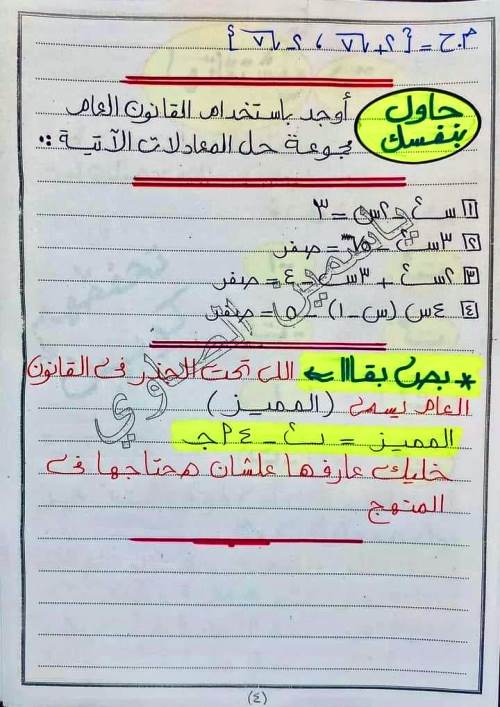 م.ح = {٢+√٧ ، ٢-√٧}
حاول بنفسك
أوجد باستخدام القانون العام
مجموعة حل المعادلات الآتية :•
١ س² - ٢س = ٣
٢ ٣س² - ٦٥ = صفر
٣ ٢س² + ٣س - ٤ = صفر
٤ ٤س (س - ١) - ٥ = صفر
* بصى بقااا ← اللى تحت الجذر فى القانون
العام يسمى (المميز)
المميز = ب² - ٤ أ جـ
خليك عارفها علشان هحتاجها فى
المنهج
ياسمين الصاوي
(٤)